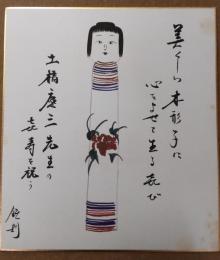 美くし木形子に
心をよせて生る喜び
土橋慶三先生の
喜寿を祝う